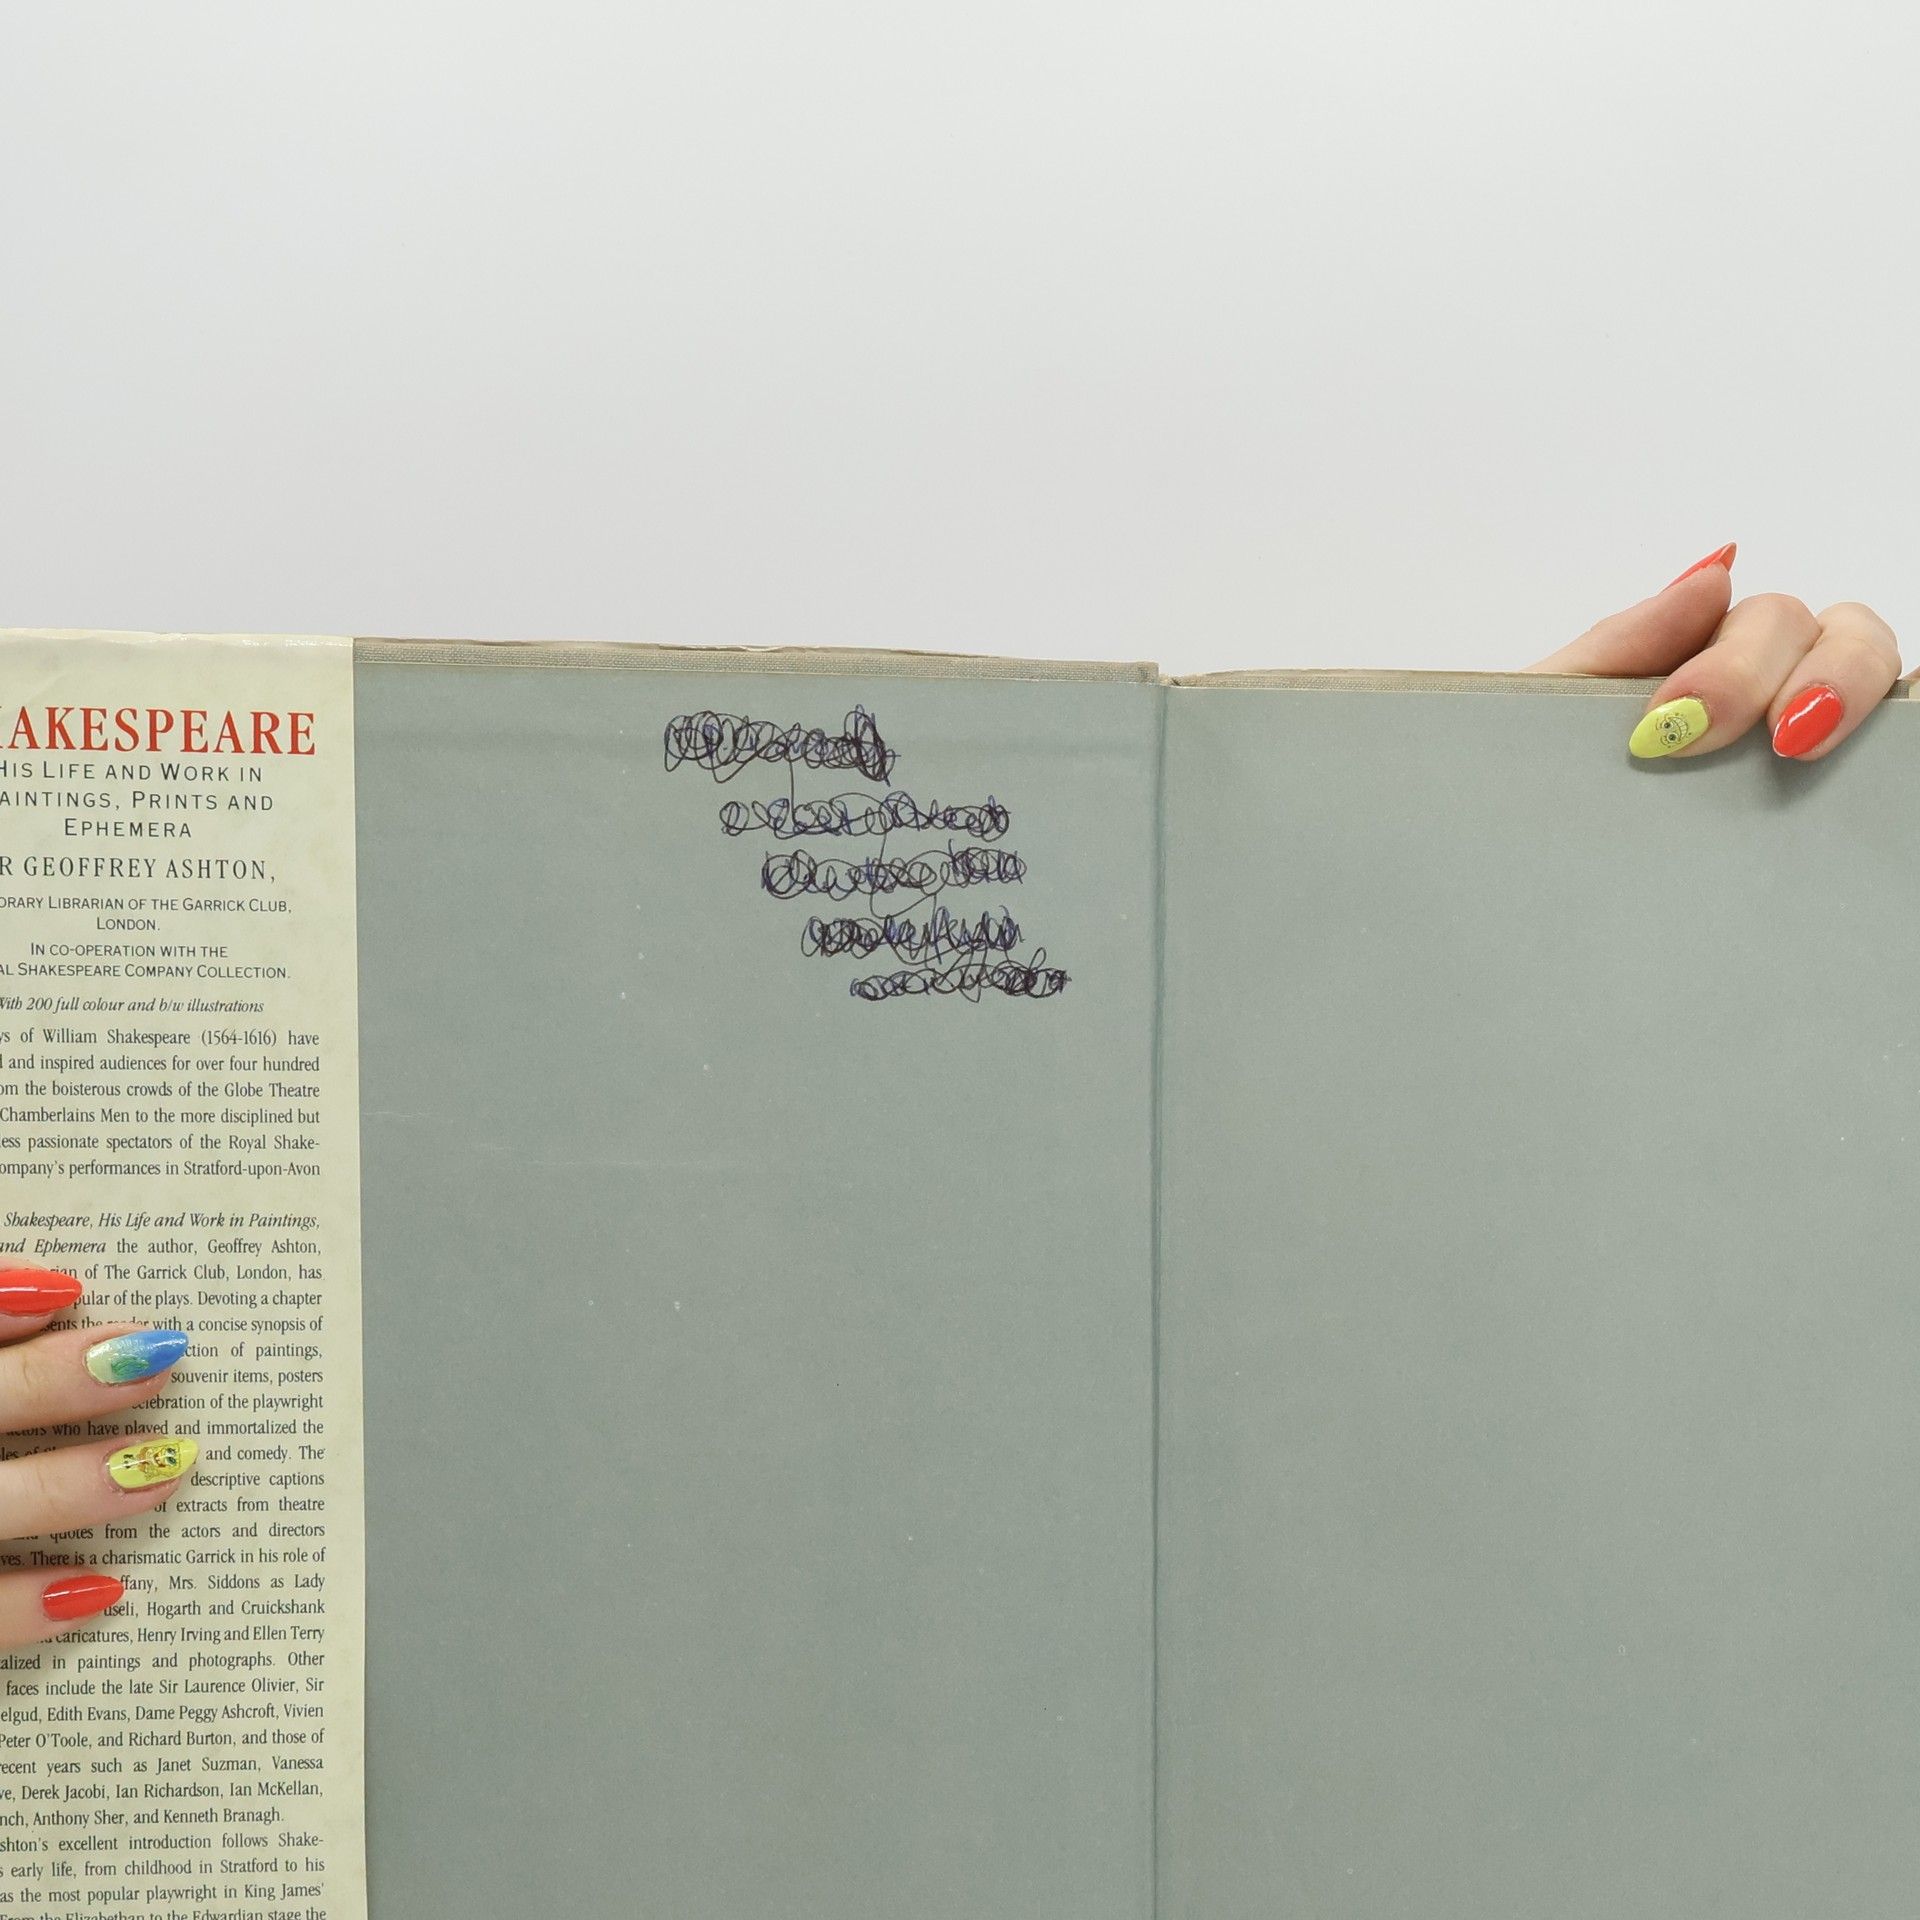 HAKESPEARE
HIS LIFE AND WORK IN
AINTINGS, PRINTS AND
EPHEMERA
R GEOFFREY ASHTON,
ORARY LIBRARIAN OF THE GARRICK CLUB,
LONDON.
IN CO-OPERATION WITH THE
AL SHAKESPEARE COMPANY COLLECTION.
With 200 full colour and b/w illustrations
ys of William Shakespeare (1564-1616) have
and inspired audiences for over four hundred
om the boisterous crowds of the Globe Theatre
Chamberlains Men to the more disciplined but
less passionate spectators of the Royal Shake-
ompany's performances in Stratford-upon-Avon
Shakespeare, His Life and Work in Paintings,
and Ephemera the author, Geoffrey Ashton,
of The Garrick Club, London, has
pular of the plays. Devoting a chapter
sents the reader with a concise synopsis of
ction of paintings,
souvenir items, posters
celebration of the playwright
actors who have played and immortalized the
and comedy. The
descriptive captions
of extracts from theatre
and quotes from the actors and directors
ves. There is a charismatic Garrick in his role of
ffany, Mrs. Siddons as Lady
useli, Hogarth and Cruickshank
caricatures, Henry Irving and Ellen Terry
alized in paintings and photographs. Other
faces include the late Sir Laurence Olivier, Sir
elgud, Edith Evans, Dame Peggy Ashcroft, Vivien
Peter O'Toole, and Richard Burton, and those of
recent years such as Janet Suzman, Vanessa
ve, Derek Jacobi, Ian Richardson, Ian McKellan,
nch, Anthony Sher, and Kenneth Branagh.
shton's excellent introduction follows Shake-
s early life, from childhood in Stratford to his
as the most popular playwright in King James'
From the Elizabethan to the Edwardian stage the